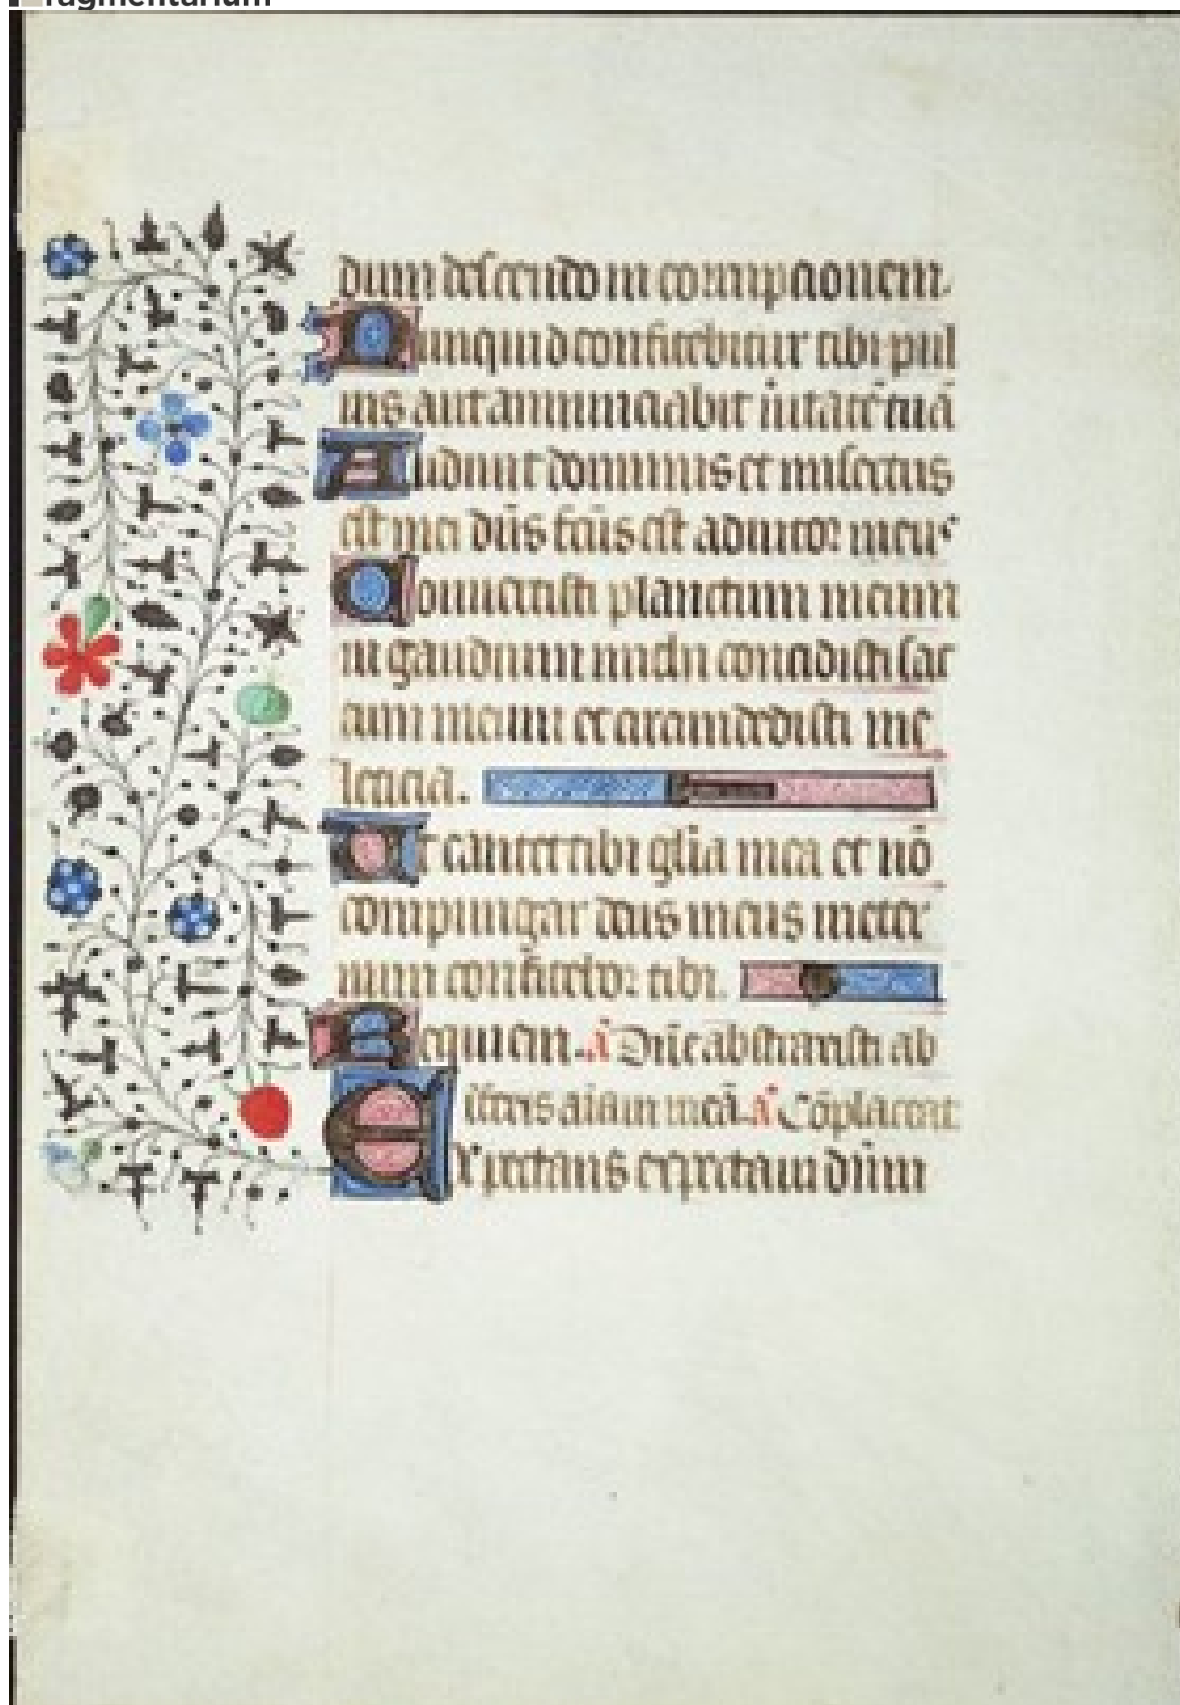 ragmentarium
dum descendo in corrupcionem.
Nunquid confitebitur tibi pul
uis aut annunciabit ūitatē tuā
Audiuit dominus et misertus
est mei dn̄s fc̄us est adiutor meus
Conuertisti planctum meum
in gaudium michi concidisti sac
cum meum et circumdedisti me
leticia.
Ut cantet tibi gl̄ia mea et nō
compungar deus meus in eter
num confitebor tibi.
Requiem. ā Dn̄e abstraxisti ab
iferis aīam meā. ā Cōplaceat
Expectans expectaui dūm